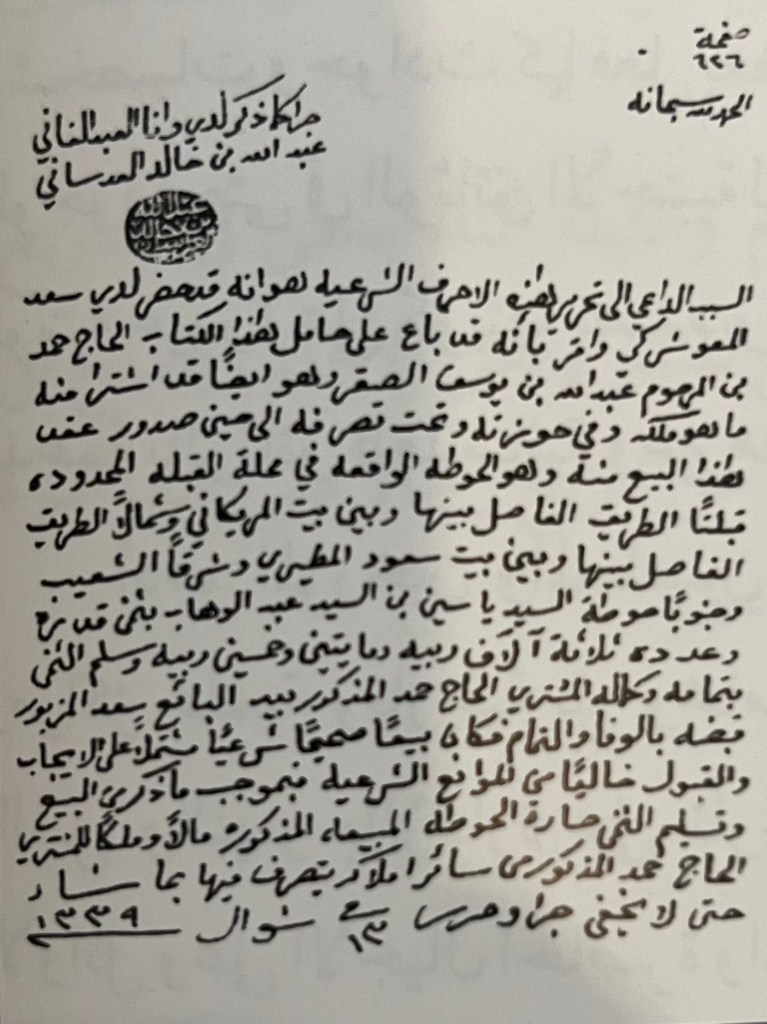 صفحة
٦٢٦
الحمد لله سبحانه
جرا كما ذكر لدي وانا العبد الفاني
عبد الله بن خالد العدساني
السبب الداعي الى تحرير هذه الاحرف الشرعيه هو انه قد حضر لدي سعد
المعوشركي واقر بانه قد باع على حامل هذا الكتاب الحاج حمد
بن المرحوم عبد الله بن يوسف الصقر وهو ايضًا قد اشترا منه
ما هو ملكه وفي حوزته وتحت تصرفه الى حين صدور عقد
هذا البيع منه وهو الحوطه الواقعه في محلة القبله المحدوده
قبلتًا الطريق الفاصل بينها وبين بيت المريكاني وشمالاً الطريق
الفاصل بينها وبين بيت سعود المطيري وشرقاً الشعيب
وجنوبًا حوطة السيد ياسين بن السيد عبد الوهاب بثمن قدره
وعدده ثلاثة آلاف ربيه ومايتين وخمسين ربيه وسلم الثمن
بتمامه وكماله المشتري الحاج حمد المذكور بيد البائع سعد المزبور
قبضه بالوفا والتمام فكان بيعًا صحيحًا شرعيًا مشتملاً على الايجاب
والقبول خاليًا من الموانع الشرعيه فبموجب ما ذكر من البيع
وتسليم الثمن صارة الحوطه المبيعه المذكوره مالاً وملكًا للمشتري
الحاج حمد المذكور من سائر املاكه يتصرف فيها بما شاء
حتى لا يخفى جرا وحرر في ١٣ شوال ١٣٣٩